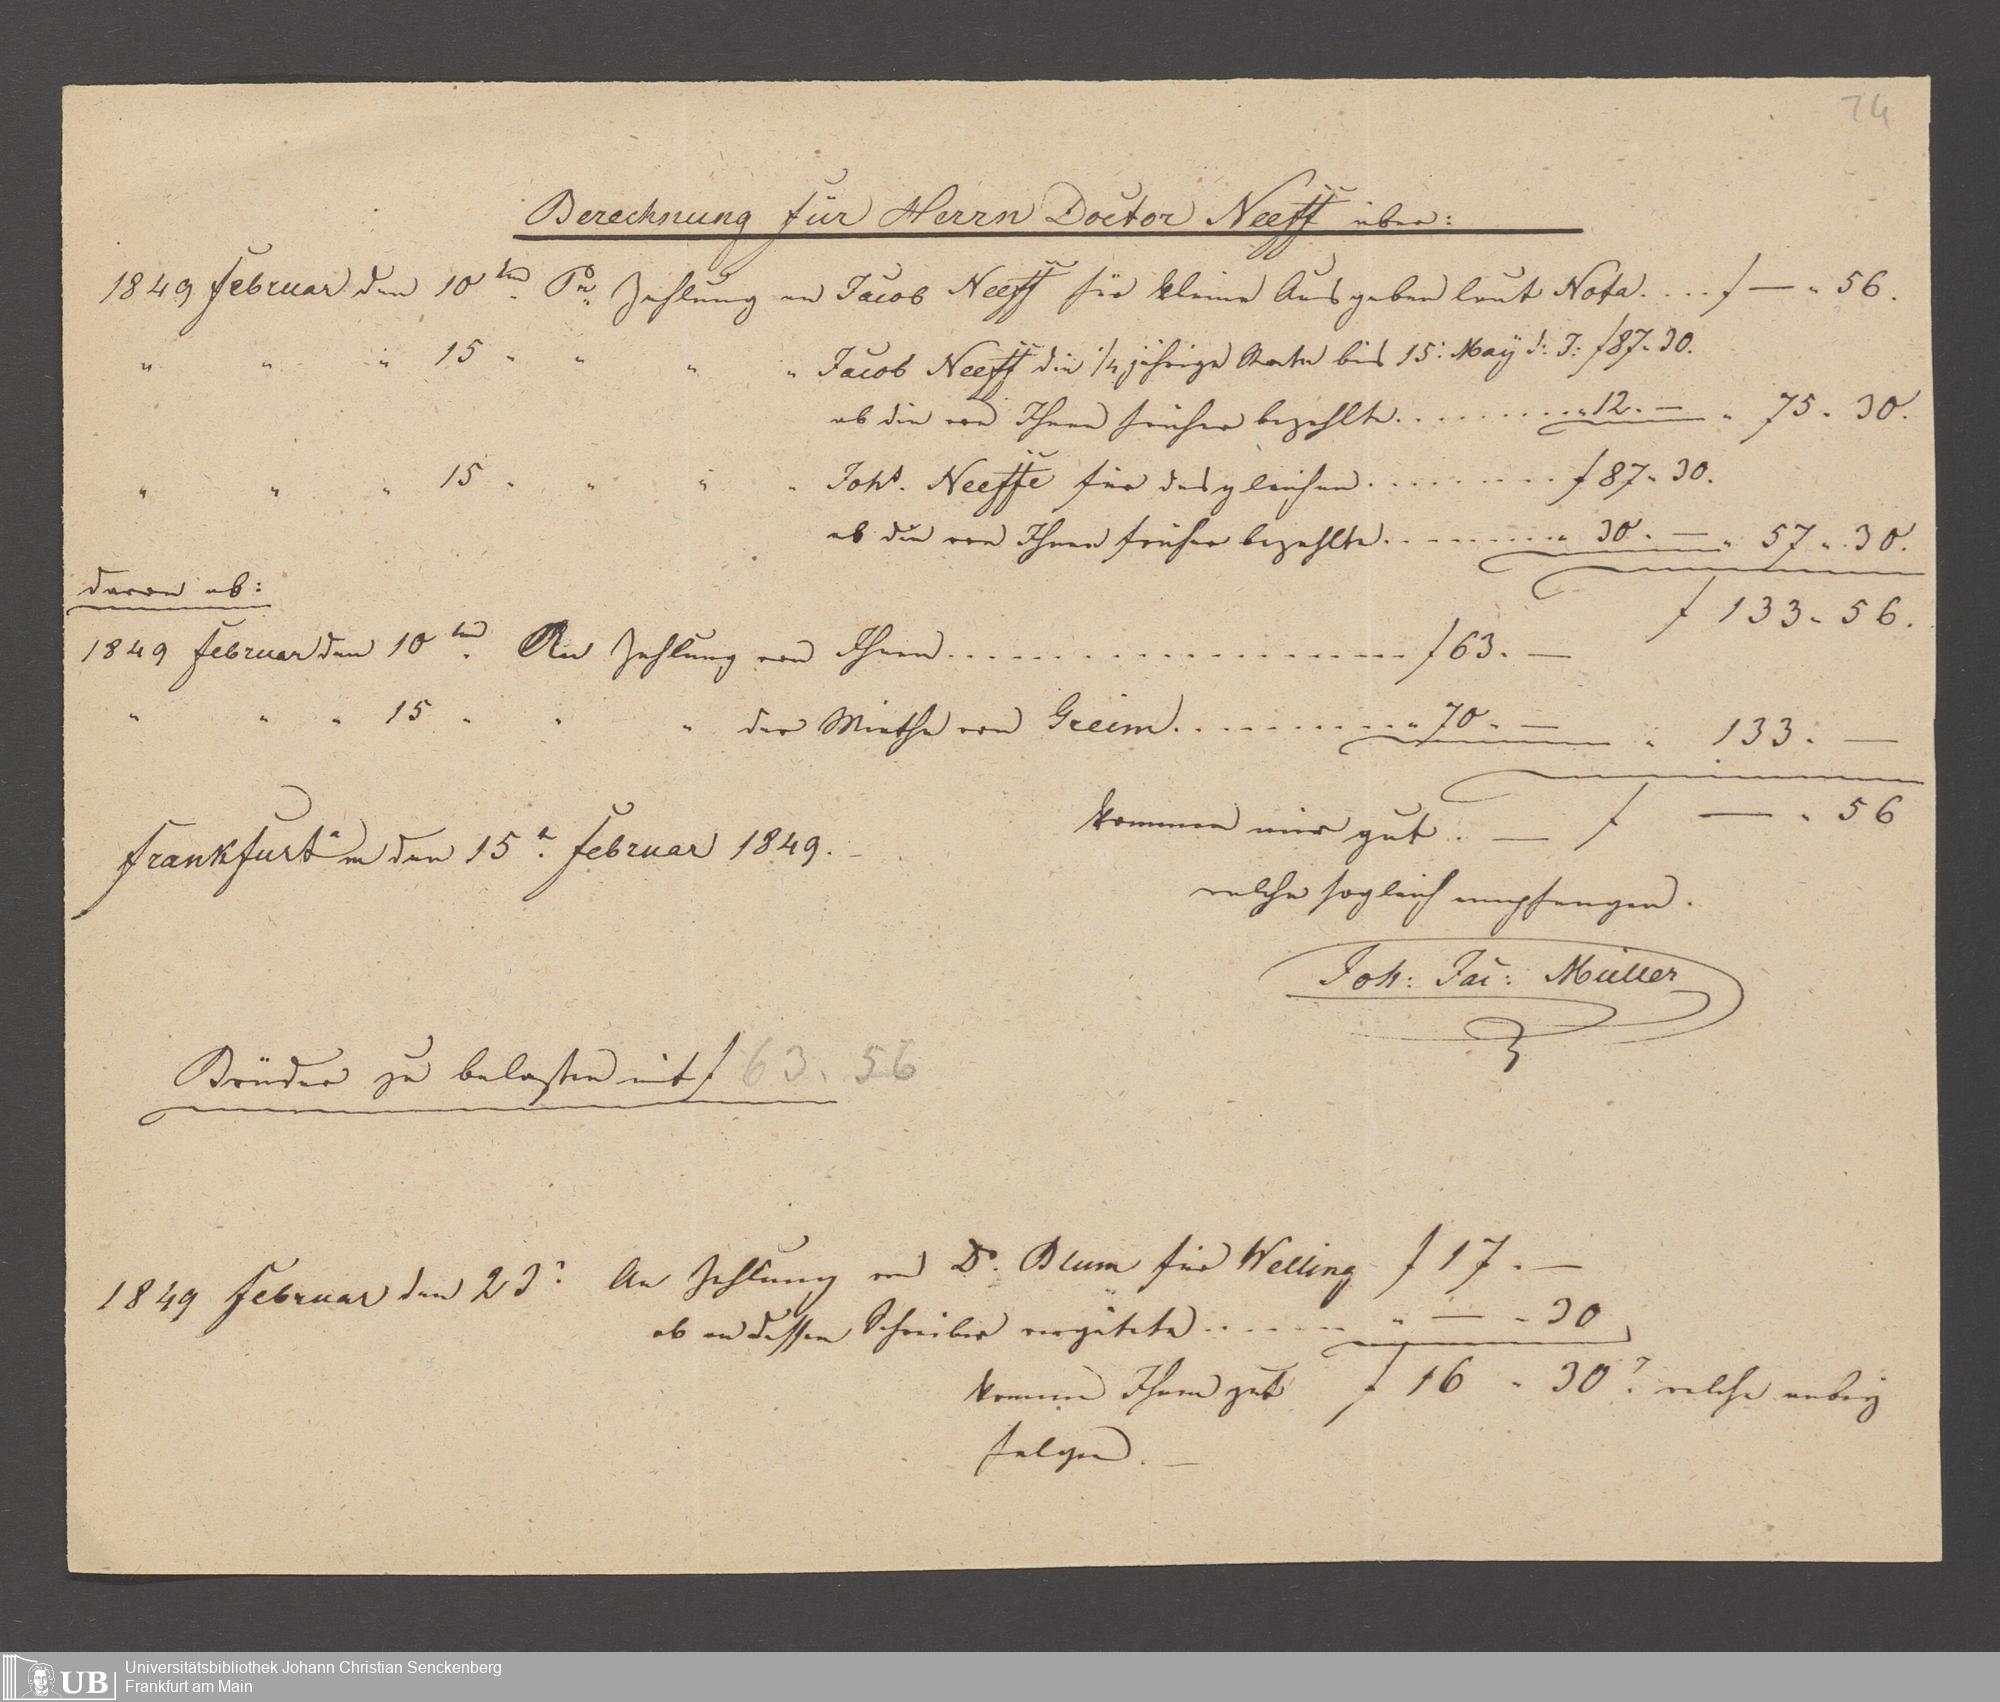 74
Berechnung für Herrn Doctor Neeff über:
1849 Februar den 10ten Pr Zahlung an Jacob Neeff für kleine Ausgaben laut Nota.... f — " 56.
" " " 15 " " " " Jacob Neeff die 1/4 jährige Rata bis 15: May d: J: f 87. 30.
ab die von Ihnen früher bezahlte.......... " 12. — " 75. 30.
" " " 15 " " " " Johs. Neeffe für desgleichen......... f 87. 30.
ab die von Ihnen früher bezahlte......... " 30. — " 57 " 30.
f 133. 56.
davon ab:
1849 Februar den 10ten An Zahlung von Ihnen.................... f 63. —
" " " 15 " " " der Miethe von Greim.......... " 70. — " 133. —
kommen mir gut. — f — " 56
Frankfurt a/m den 15n. Februar 1849. —
welche sogleich empfangen.
Joh: Jac: Müller
Brüder zu belasten mit f 63. 56
1849 Februar den 23: An Zahlung von Dr. Blum für Welling f 17. —
ab an dessen Schreiber vergütete....... " — " 30
kommen Ihnen gut f 16 " 30. welche anbey
folgen. —
UB
Universitätsbibliothek Johann Christian Senckenberg
Frankfurt am Main